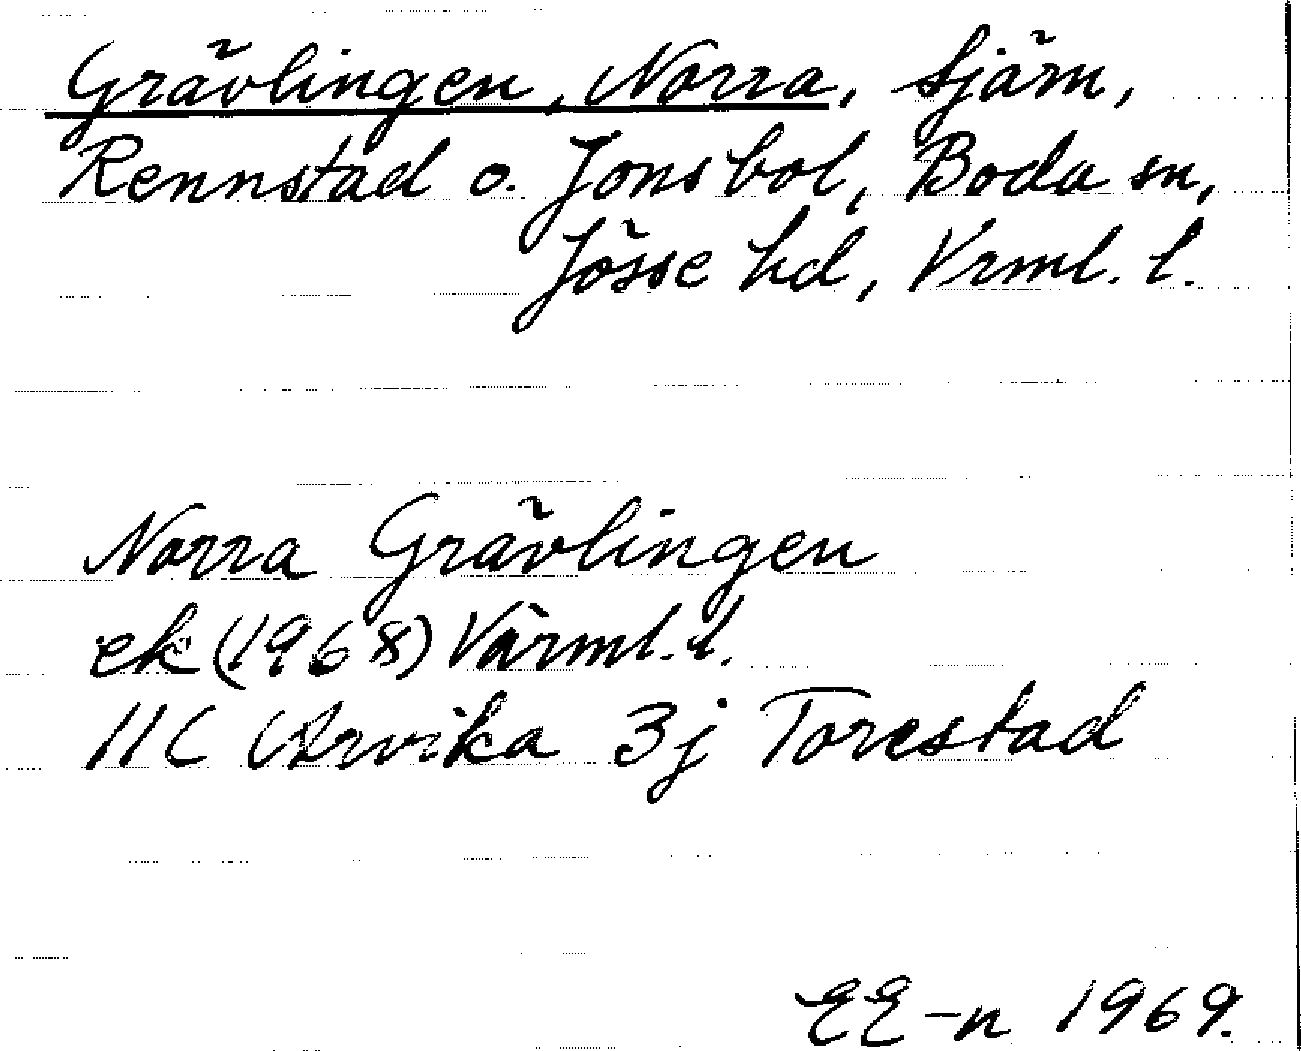 Grävlingen, Norra, sjäm,
Rennstad o. Jonsbol, Boda sn,
Jösse hd, Vrml. l.
Norra Grävlingen
ek (1968) Värml. l.
11C Arvika 3j Torestad
EE-n 1969.